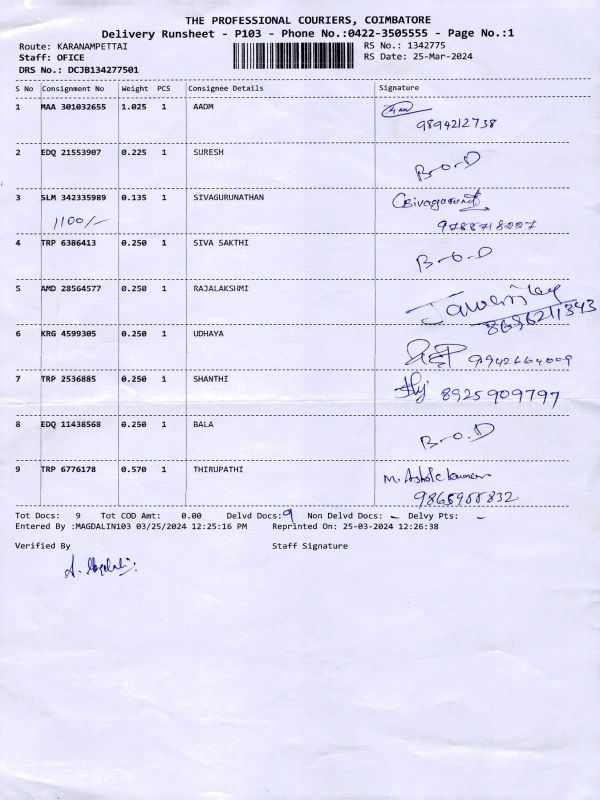 THE PROFESSIONAL COURIERS, COIMBATORE
Delivery Runsheet - P103 - Phone No.:0422-3505555 - Page No.:1
Route: KARANAMPETTAI RS No.: 1342775
Staff: OFICE RS Date: 25-Mar-2024
DRS No.: DCJB134277501
S No Consignment No Weight PCS Consignee Details Signature
1 MAA 301032655 1.025 1 AADM
9894212738
2 EDQ 21553907 0.225 1 SURESH
B-O-D
3 SLM 342335989 0.135 1 SIVAGURUNATHAN
1100/- 9788718007
4 TRP 6386413 0.250 1 SIVA SAKTHI
B-O-D
5 AMD 28564577 0.250 1 RAJALAKSHMI
8696211343
6 KRG 4599305 0.250 1 UDHAYA
9942664009
7 TRP 2536885 0.250 1 SHANTHI
8925909797
8 EDQ 11438568 0.250 1 BALA
B-O.D
9 TRP 6776178 0.570 1 THIRUPATHI
M. Ashok kumar
Tot Docs: 9 Tot COD Amt: 0.00 Delvd Docs: 9 Non Delvd Docs: - Delvy Pts: -
Entered By :MAGDALIN103 03/25/2024 12:25:16 PM Reprinted On: 25-03-2024 12:26:38
Verified By Staff Signature